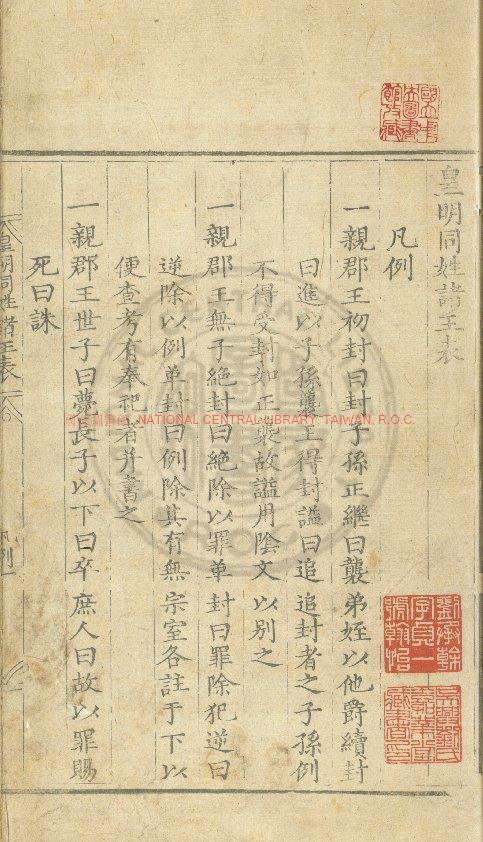 皇明同姓諸王表
凡例
一親郡王初封曰封子孫正繼曰襲弟姪以他爵續封
曰進以子孫襲王得封謚曰追追封者之子孫例
不得受封如正襲故謚用陰文以別之
一親郡王無子絕封曰絕除以罪革封曰罪除犯逆曰
逆除以例革封曰例除其有無宗室各註于下以
便查考有奉祀者并書之
一親郡王世子曰薨長子以下曰卒庶人曰故以罪賜
死曰誅
皇明同姓諸王表
凡例一
國立中央圖書館收藏
劉承幹字貞一號翰怡
吳興劉氏嘉業堂藏書印
NATIONAL CENTRAL LIBRARY, TAIWAN, R.O.C.